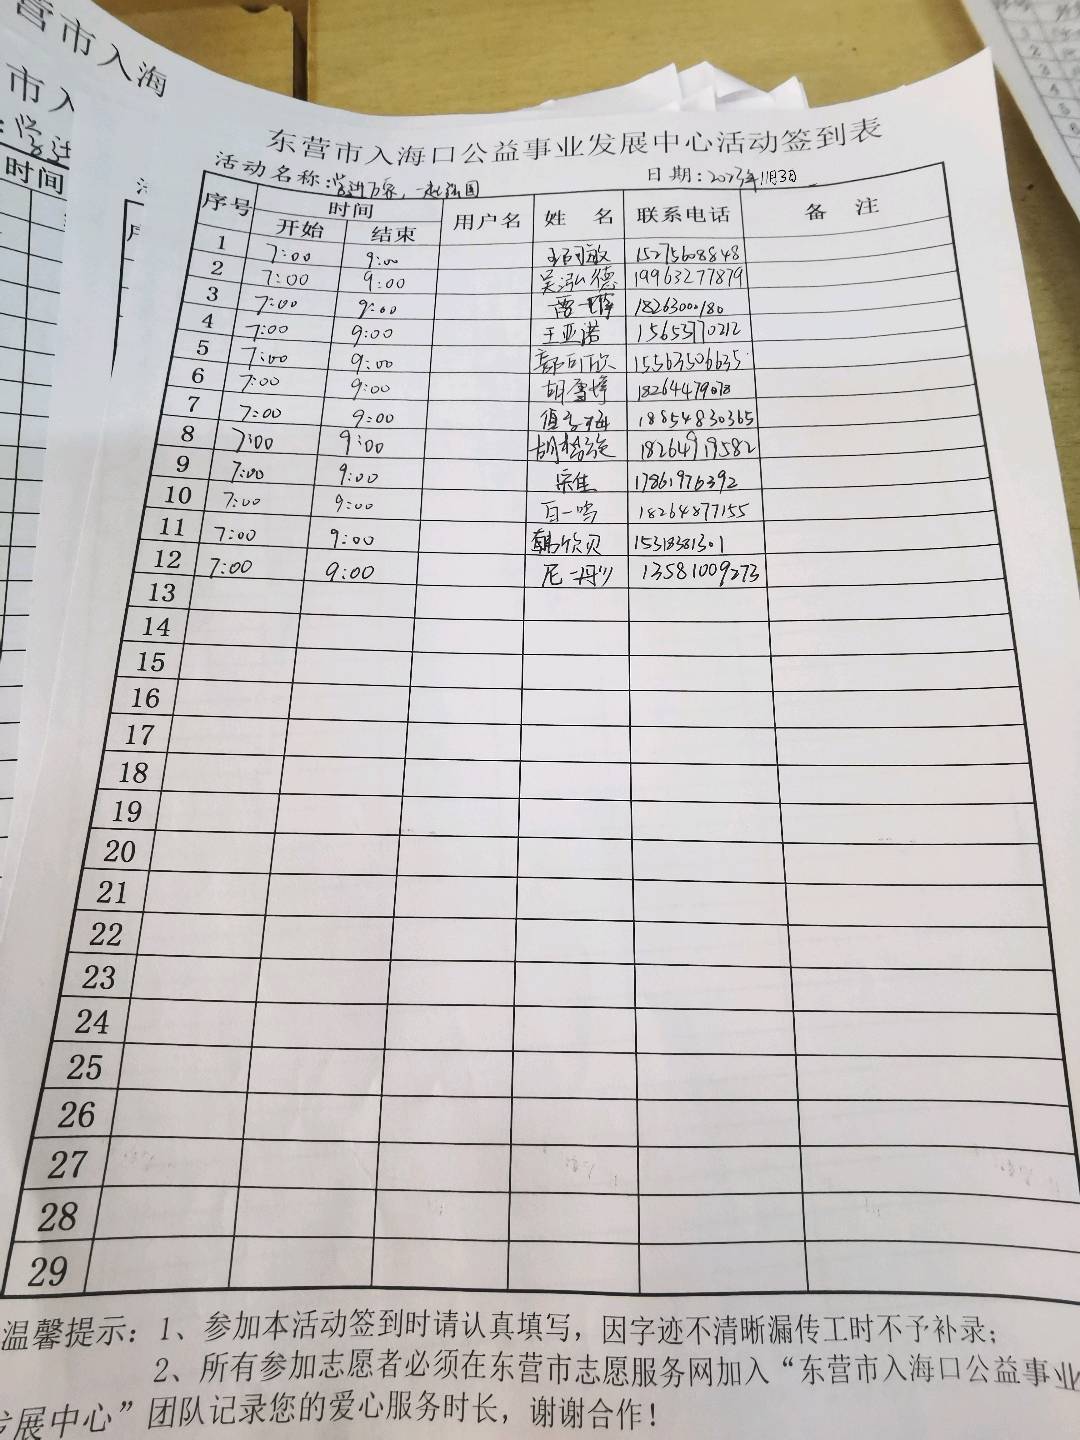 营市入海
市入
时间
东营市入海口公益事业发展中心活动签到表
活动名称:学进万家,一起 日期:2023年11月3日
序号 时间 用户名 姓 名 联系电话 备 注
开始 结束
1 7:00 9:00 王可敏 15275608848
2 7:00 9:00 吴泓德 19963277879
3 7:00 9:00 18263000180
4 7:00 9:00 王亚诺 15653770212
5 7:00 9:00 15563506635
6 7:00 9:00 胡雪婷 18264479078
7 7:00 9:00 18854830365
8 7:00 9:00 18264919582
9 7:00 9:00 宗佳 17861976392
10 7:00 9:00 百一鸣 18264877155
11 7:00 9:00 韩欣贝 15318381301
12 7:00 9:00 尼 13581009273
13
14
15
16
17
18
19
20
21
22
23
24
25
26
27
28
29
温馨提示:1、参加本活动签到时请认真填写,因字迹不清晰漏传工时不予补录;
2、所有参加志愿者必须在东营市志愿服务网加入“东营市入海口公益事业
发展中心”团队记录您的爱心服务时长,谢谢合作!